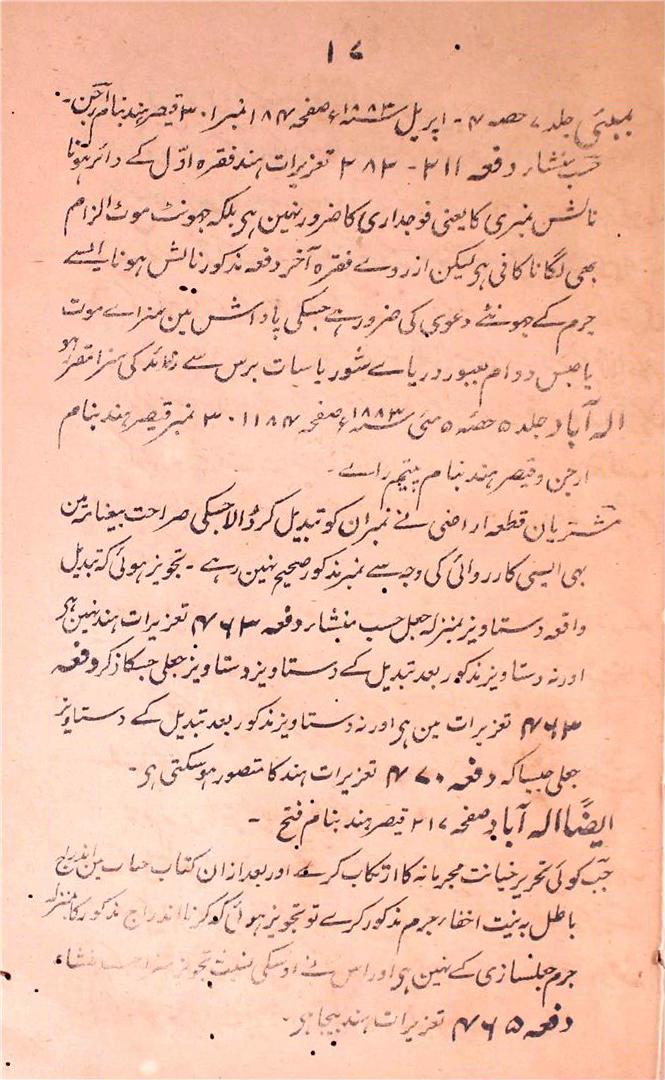 ۱۷
بمبئی جلد ۷ حصہ ۴ - اپریل ۱۸۸۳ء صفحہ ۱۸۴ نمبر ۳۰۱ قیصر ہند بنام ارجن -
حسب منشار دفعہ ۲۱۱ - ۳۸۳ تعزیرات ہند فقرہ اوّل کے دائر ہونا
نالش نمبری کا یعنی فوجداری کا ضرور نہین ہی بلکہ جھونٹ موٹ الزام
بھی لگانا کافی ہی لیکن از روے فقرہ آخر دفعہ مذکور نالش ہونا ایسے
جرم کے جھونٹے دعوی کی ضرور ہے جسکی پاداش مین سزاے موت
یا حبس دوام بعبور دریاے شور یا سات برس سے زائد کی سزا مقرر ہو
الہ آباد جلد ۵ حصہ ۵ مئی ۱۸۸۳ء صفحہ ۱۱۸۴ ۳۰ نمبر قیصر ہند بنام
ارجن و قیصر ہند بنام پیتم راے -
مشتریان قطعہ اراضی نے نمبران کو تبدیل کر ڈالا جسکی صراحت بیعنامہ مین
تھی ایسی کارروائی کی وجہ سے نمبر مذکور صحیح نہین رہے - تجویز ہوئی کہ تبدیل
واقعہ دستاویز بمنزلہ جعل حسب منشار دفعہ ۴۶۳ تعزیرات ہند نہین ہی
اور نہ دستاویز مذکور بعد تبدیل کے دستاویز دستاویز جعلی جسکا ذکر دفعہ
۴۶۳ تعزیرات مین ہی اور نہ دستاویز مذکور بعد تبدیل کے دستاویز
جعلی جیسا کہ دفعہ ۴۷۰ تعزیرات ہند کا متصور ہو سکتی ہی -
ایضًا الہ آباد صفحہ ۲۱۷ قیصر ہند بنام فتح -
جب کوئی تحریر خیانت مجرمانہ کا ارتکاب کرے اور بعد ازان کتاب حساب مین اندراج
باطل بہ نیت اخفاء جرم مذکور کرے تو تجویز ہوئی کہ کرنا اندراج مذکور کا بمنزلہ
جرم جلسازی کے نہین ہی اور اس نے اوسکی نسبت تجویز حسب منشاء
دفعہ ۴۶۵ تعزیرات ہند بیجا ہی -